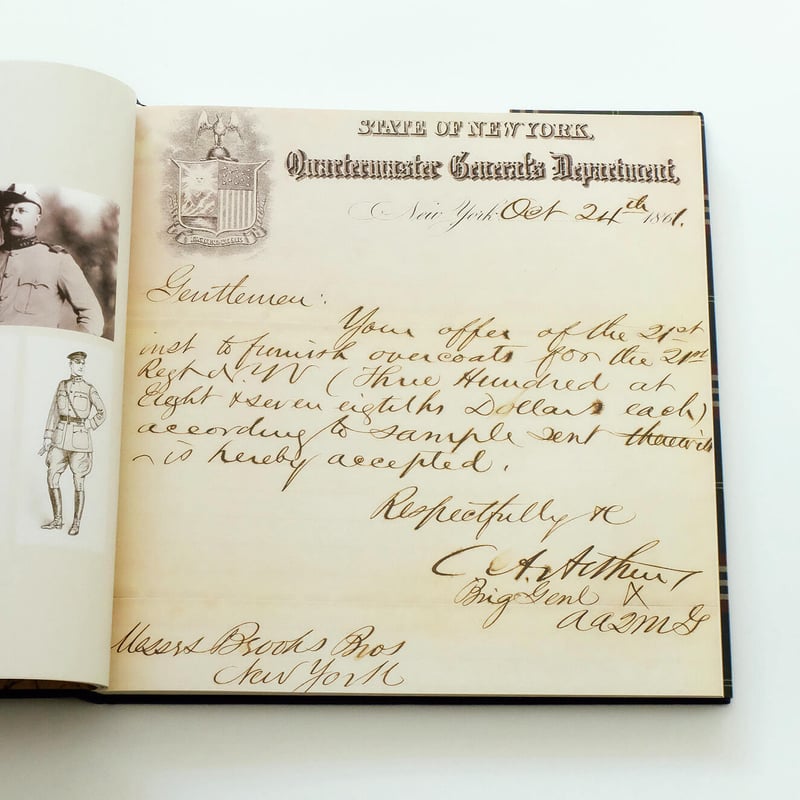 STATE OF NEW YORK.
Quartermaster General's Department,
New York Oct 24th 1861.
Gentlemen:
Your offer of the 21st
inst to furnish overcoats for the 21st
Regt N.Y.V (Three Hundred at
Eight & seven eigtths Dollars each)
according to sample sent therewith
is hereby accepted.
Respectfully &c
C. A. Arthur
Brig Genl &
Messrs Brooks Bros
New York